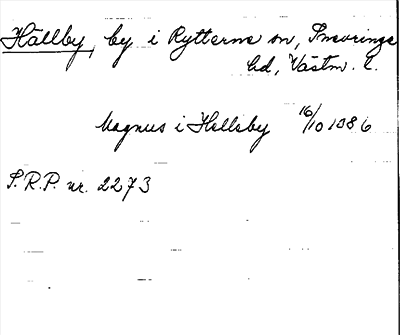 Hällby, by i Rytterne sn, Snevringe
hd, Västm. l.
Magnus i Helleby 16/10 1386
S.R.P. nr. 2273